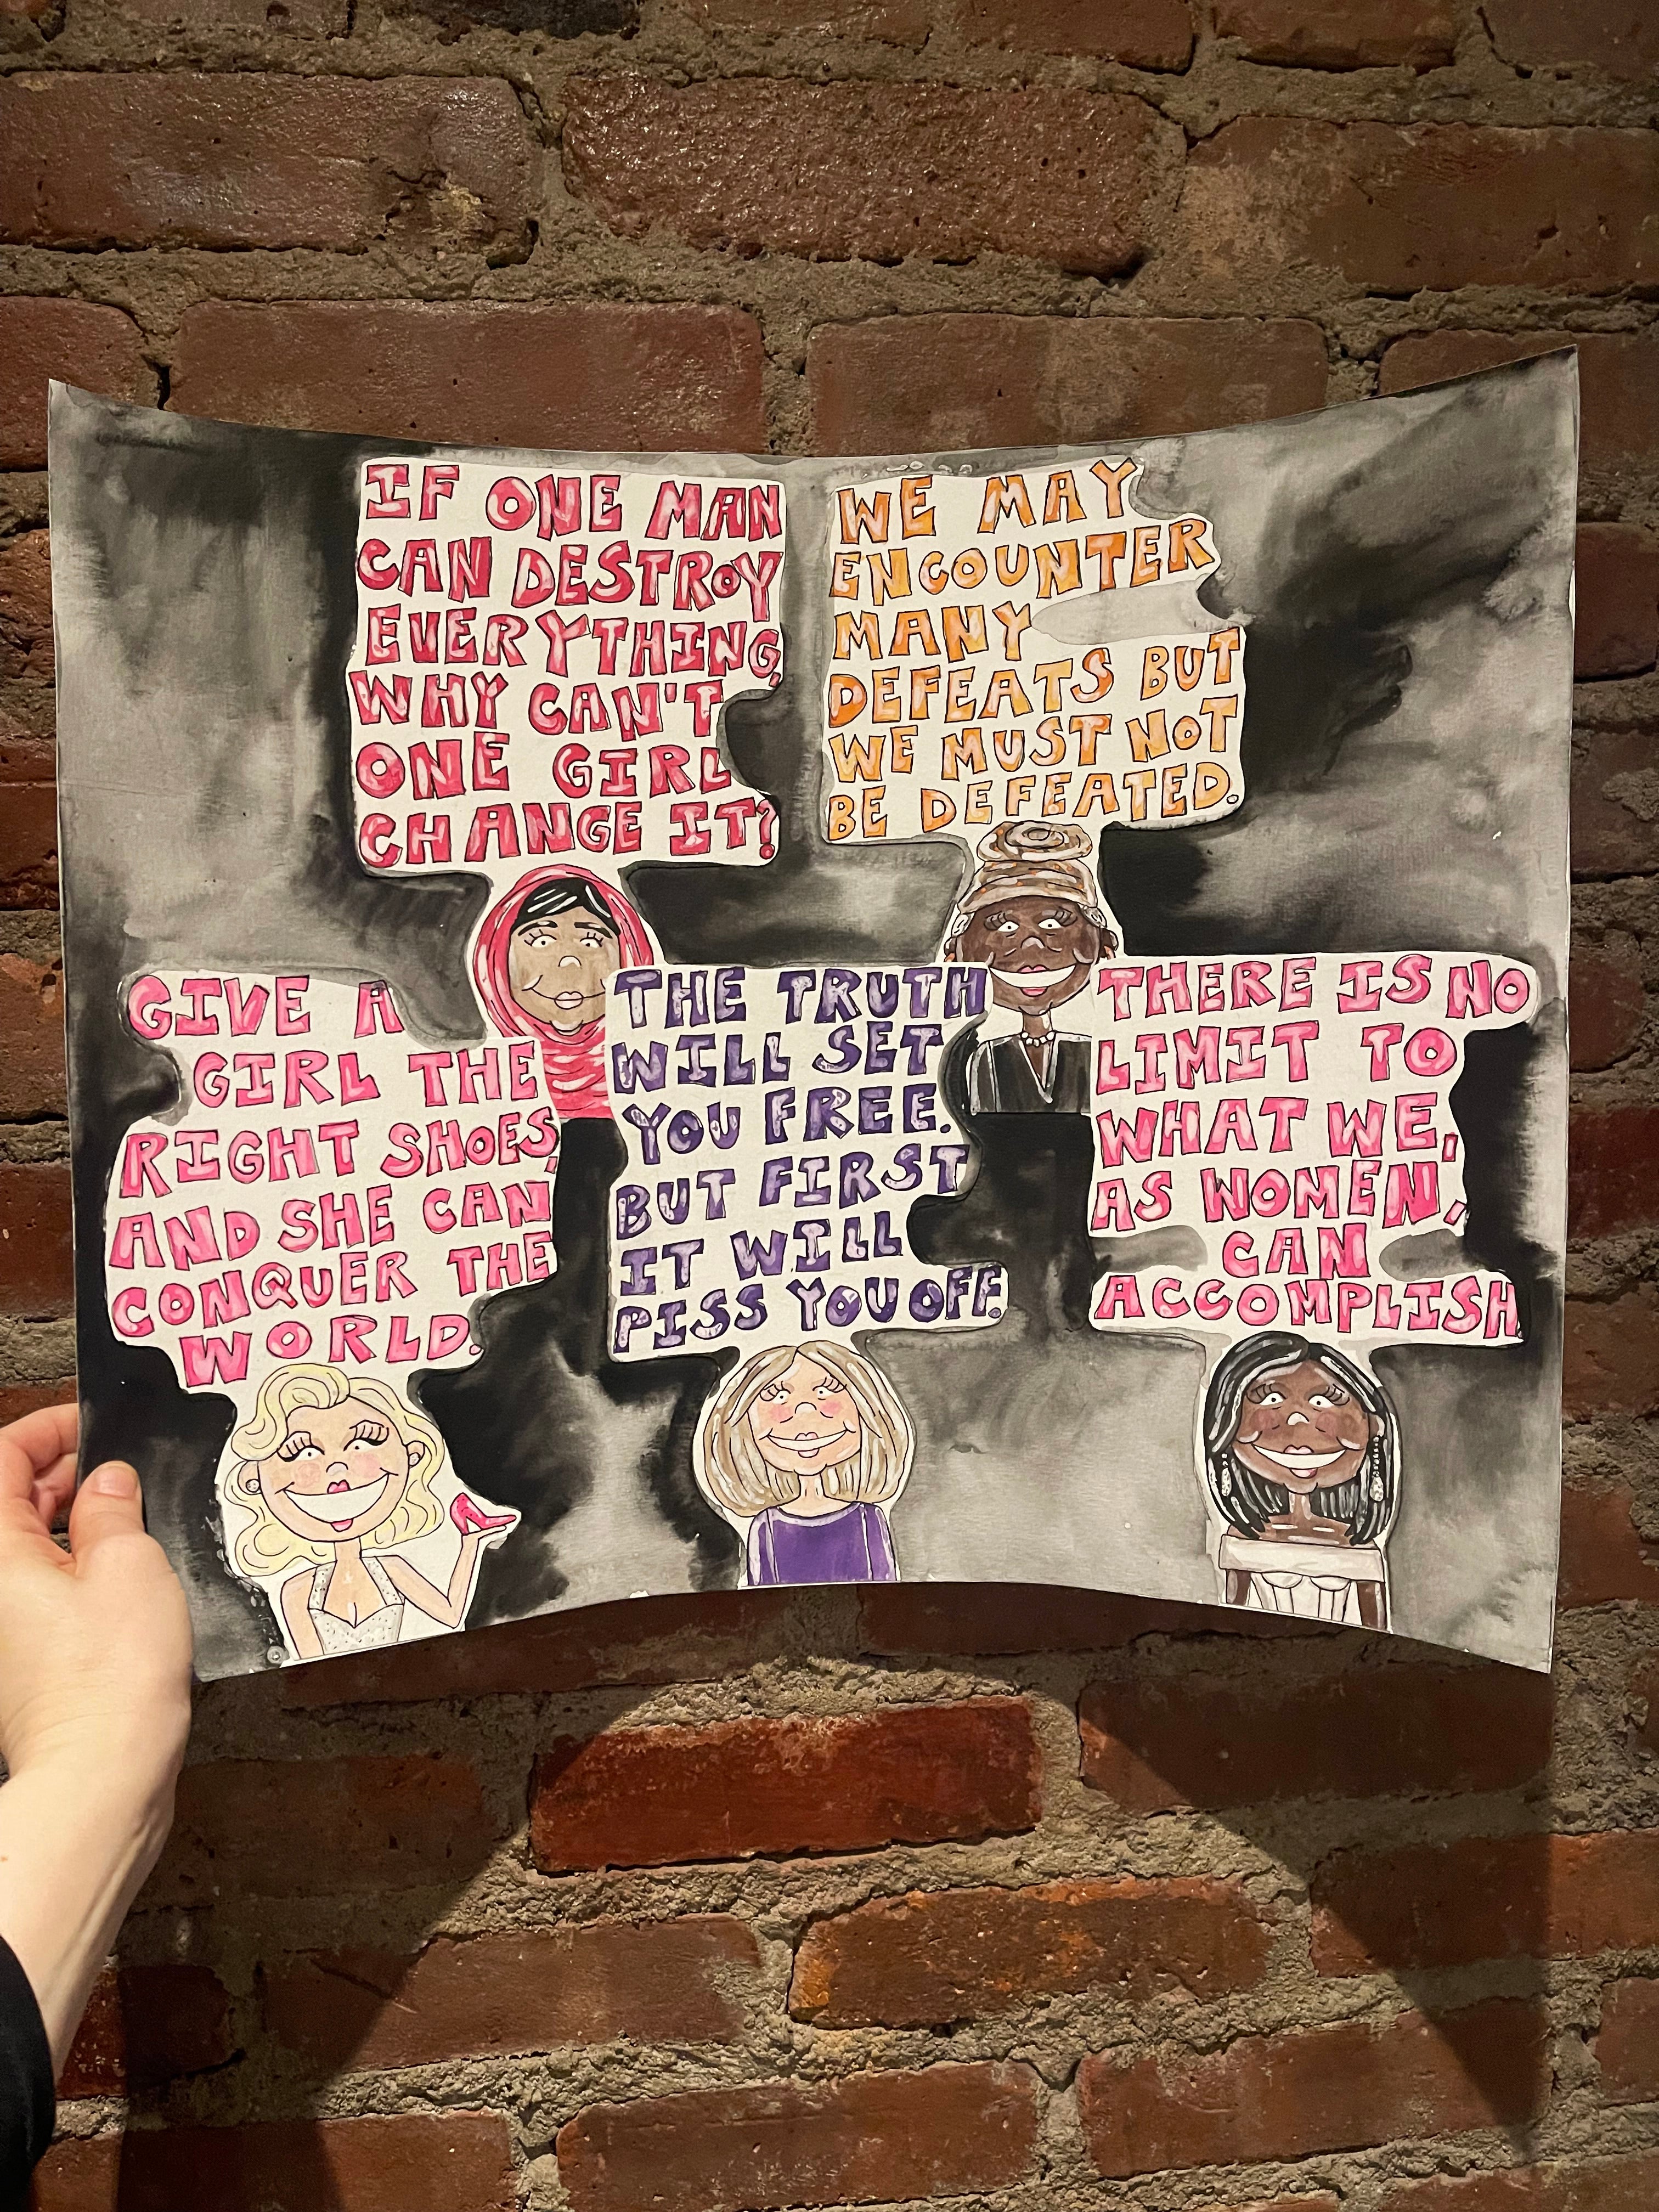 IF ONE MAN
CAN DESTROY
EVERYTHING,
WHY CAN'T
ONE GIRL
CHANGE IT?
WE MAY
ENCOUNTER
MANY
DEFEATS BUT
WE MUST NOT
BE DEFEATED.
GIVE A
GIRL THE
RIGHT SHOES,
AND SHE CAN
CONQUER THE
WORLD.
THE TRUTH
WILL SET
YOU FREE.
BUT FIRST
IT WILL
PISS YOU OFF.
THERE IS NO
LIMIT TO
WHAT WE,
AS WOMEN,
CAN
ACCOMPLISH